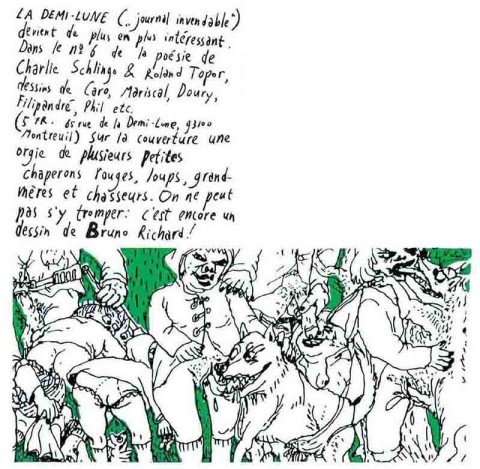 LA DEMI-LUNE („journal invendable")
devient de plus en plus intéressant.
Dans le nº 6 de la poésie de
Charlie Schlingo & Roland Topor,
dessins de Caro, Mariscal, Doury,
Filipandré, Phil etc.
(5 FR. 65 rue de la Demi-Lune, 93100
Montreuil) sur la couverture une
orgie de plusieurs petites
chaperons rouges, loups, grand-
mères et chasseurs. On ne peut
pas s'y tromper: c'est encore un
dessin de Bruno Richard!